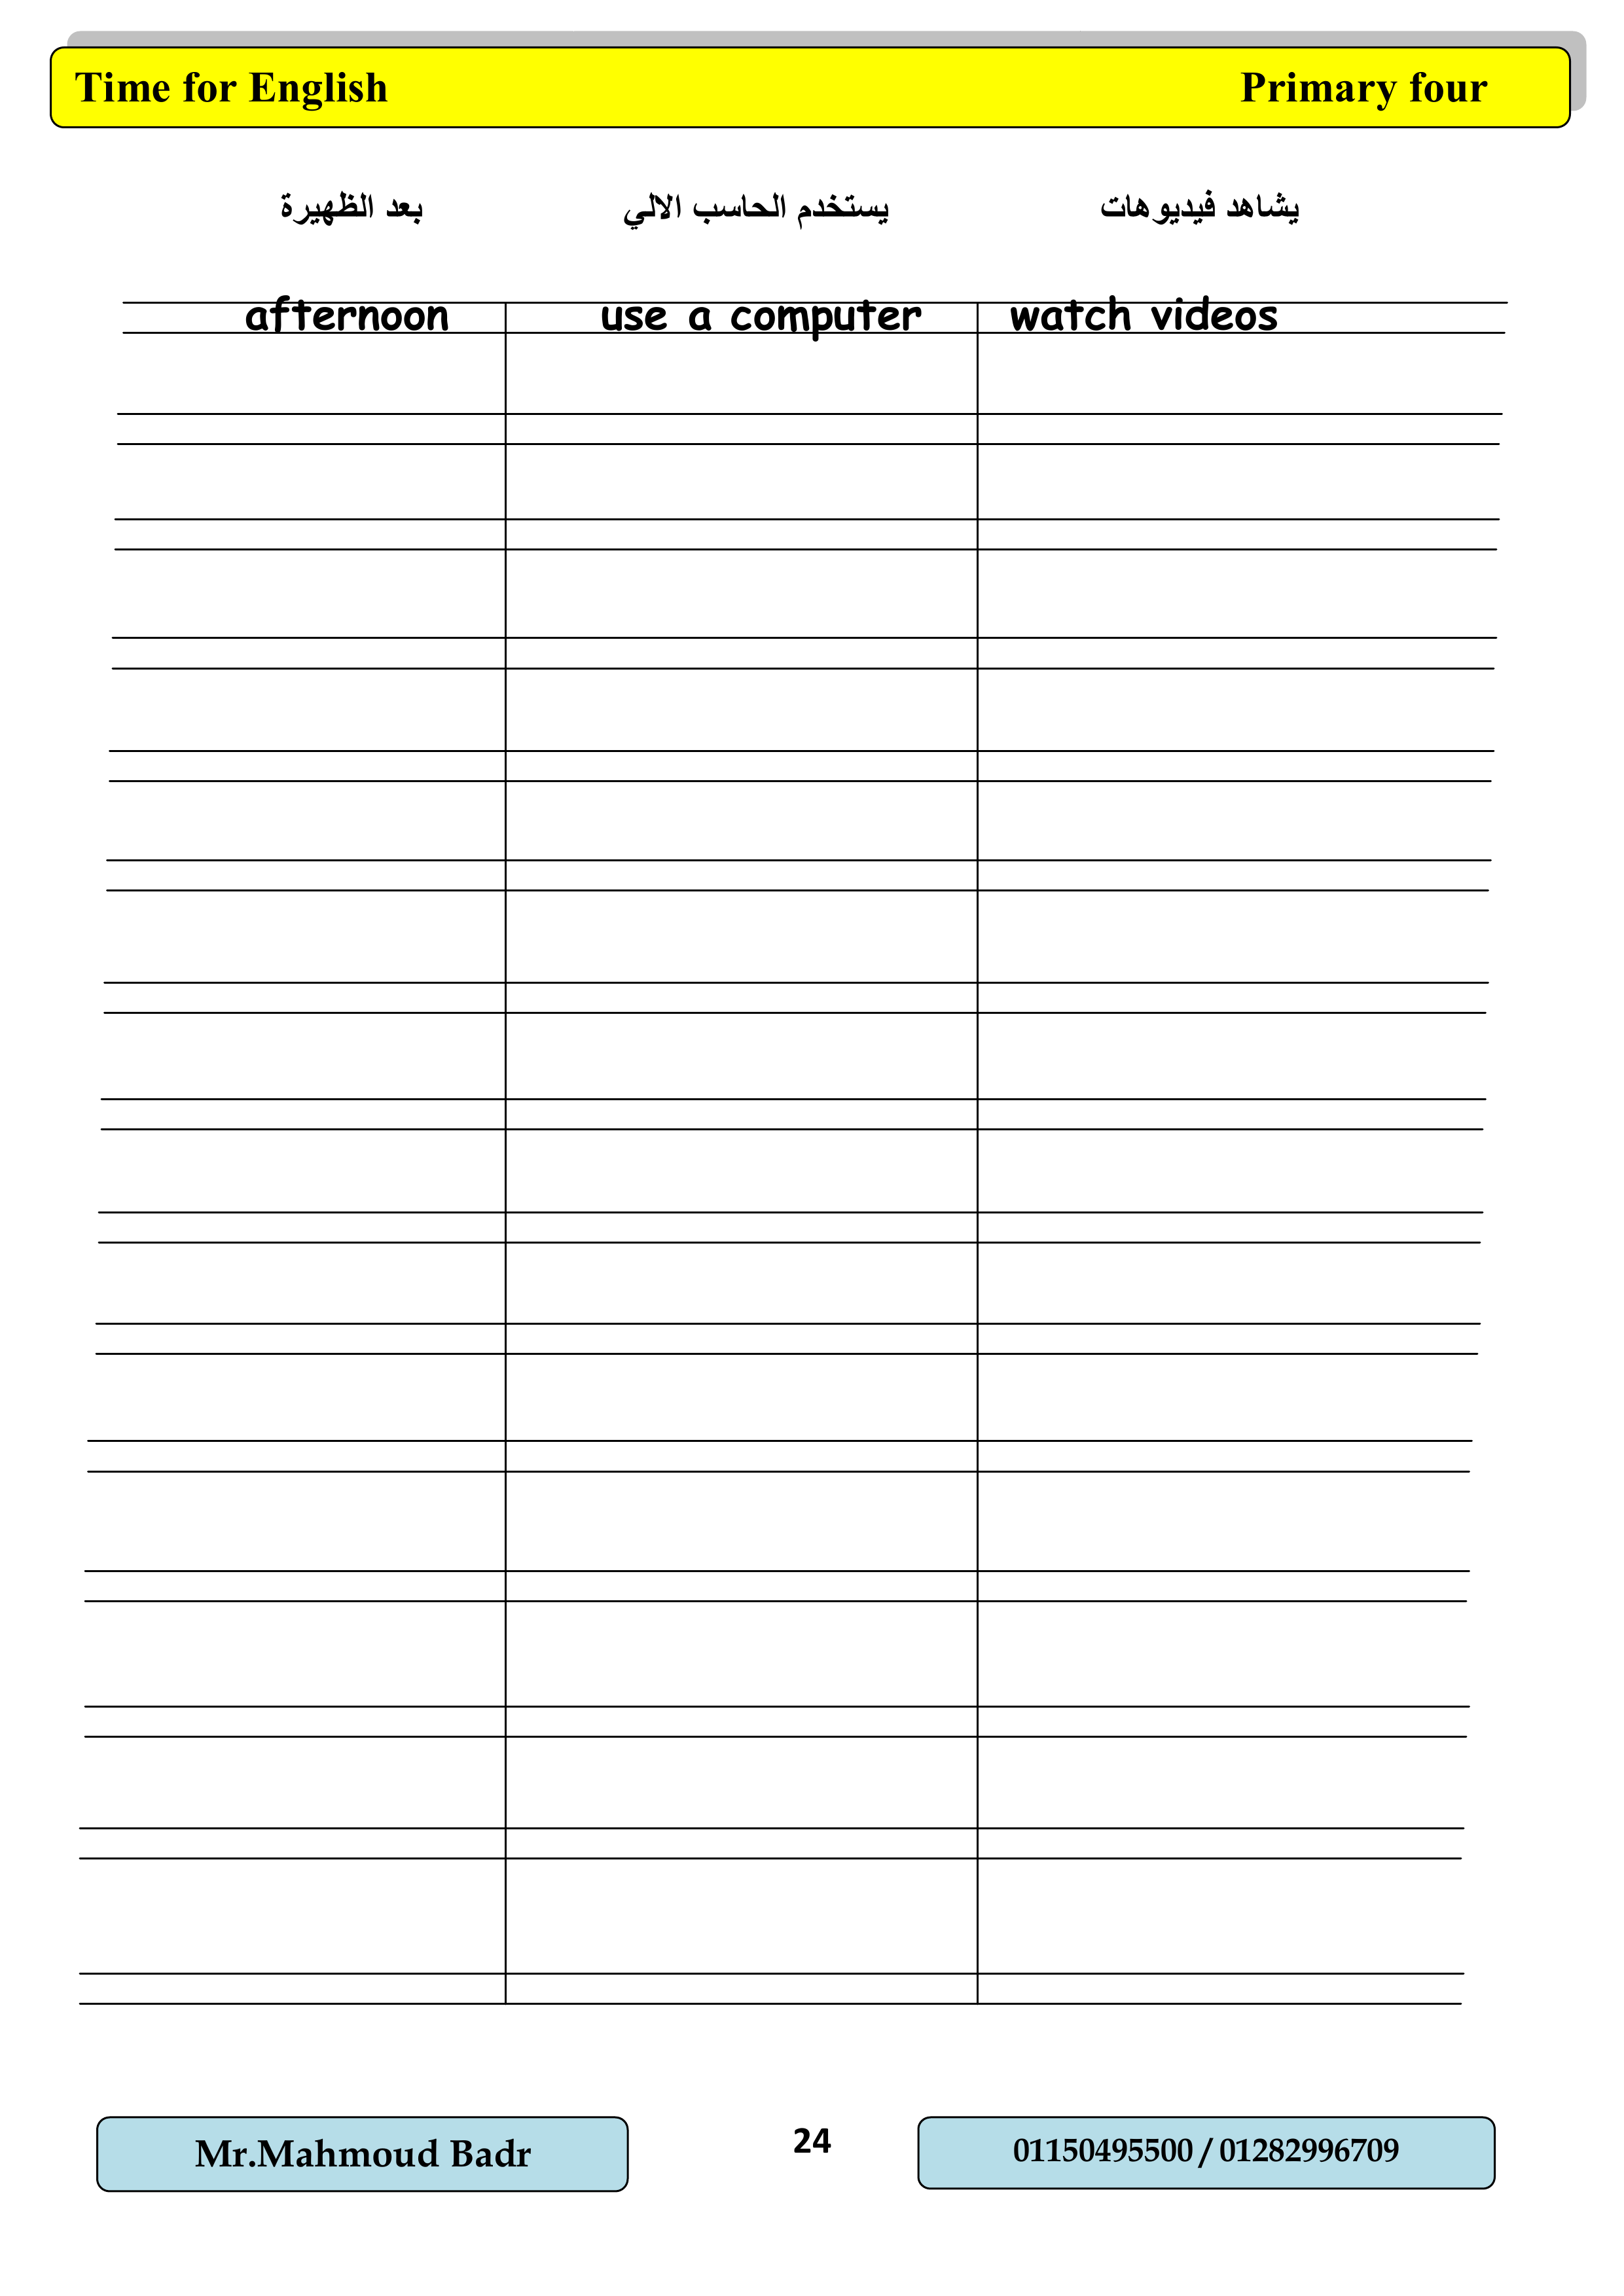 Time for English Primary four
بعد الظهيرة يستخدم الحاسب الالي يشاهد فيديوهات
afternoon use a computer watch videos
Mr.Mahmoud Badr 24 01150495500 / 01282996709